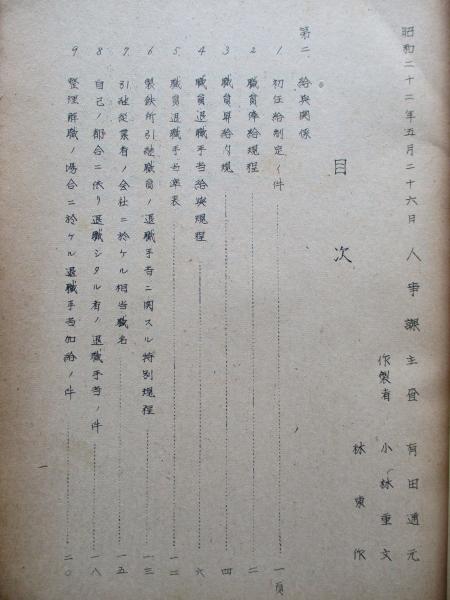 昭和二十二年五月二十六日 人事課 主査 有田通元
作製者 小林重文
林東作
目次
第二 給與関係
1. 初任給制定ノ件 一頁
2. 職員俸給規程 二
3. 職員昇給内規 四
4. 職員退職手当給與規程 六
5. 職員退職手当率表 一二
6. 製鉄所引継職員ノ退職手当ニ関スル特別規程 一三
7. 引継従業者ノ会社ニ於ケル相当職名 一五
8. 自己ノ都合ニ依リ退職シタル者ノ退職手当ノ件 一八
9. 整理解職ノ場合ニ於ケル退職手当加給ノ件 二〇